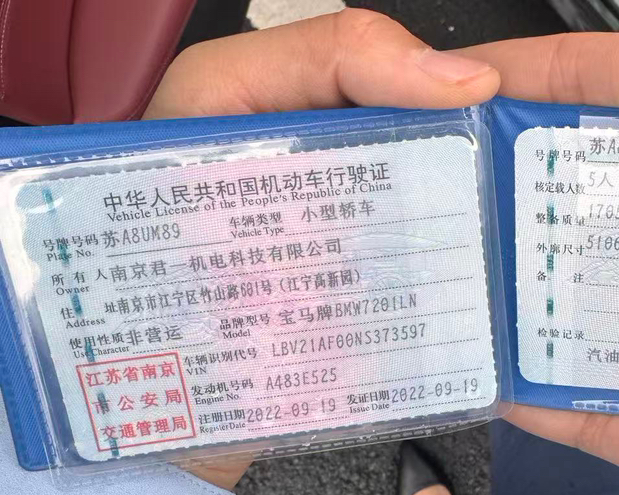 中华人民共和国机动车行驶证
Vehicle License of the People's Republic of China
号牌号码 苏A8UM89 车辆类型 小型轿车
Plate No. Vehicle Type
所有人 南京君一机电科技有限公司
Owner
住址 南京市江宁区竹山路601号(江宁高新园)
Address
使用性质 非营运 品牌型号 宝马牌BMW7201LN
Use Character Model
江苏省南京
市公安局
交通管理局
车辆识别代号 LBV21AF00NS373597
VIN
发动机号码 A483E525
Engine No.
注册日期 2022-09-19 发证日期 2022-09-19
Register Date Issue Date
号牌号码 苏A
核定载人数 5人
整备质量 170
外廓尺寸 510
备注
检验记录
汽油